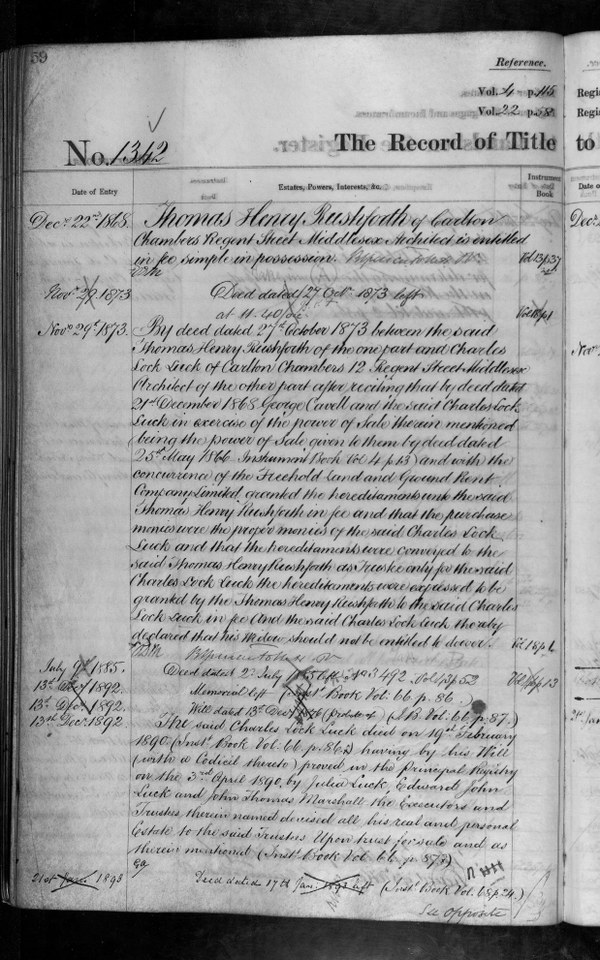 59
Reference.
Vol. 4 p. 115
Vol. 22 p. 58
No. 1342
The Record of Title
to
Date of Entry
Estates, Powers, Interests, &c.
Instrument Book
Decr. 22nd 1868.
Thomas Henry Rushforth of Carlton
Chambers Regent Street Middlesex Architect is entitled
in fee simple in possession.
Vol 13 p 37
Novr. 29 1873
Deed dated 27 Octr. 1873 left
at 11.40
Novr. 29th 1873.
By deed dated 27th October 1873 between the said
Thomas Henry Rushforth of the one part and Charles
Lock Luck of Carlton Chambers 12 Regent Street Middlesex
Architect of the other part after reciting that by deed dated
21st December 1868 George Cavell and the said Charles Lock
Luck in exercise of the power of Sale therein mentioned
(being the power of Sale given to them by deed dated
25th May 1866 Instrument Book Vol 4 p 13) and with the
concurrence of the Freehold Land and Ground Rent
Company Limited granted the hereditaments unto the said
Thomas Henry Rushforth in fee and that the purchase
monies were the proper monies of the said Charles Lock
Luck and that the hereditaments were conveyed to the
said Thomas Henry Rushforth as Trustee only for the said
Charles Lock Luck the hereditaments were expressed to be
granted by the Thomas Henry Rushforth to the said Charles
Lock Luck in fee And the said Charles Lock Luck thereby
declared that his Widow should not be entitled to dower.
Vol 18 p 1
July 9th 1885.
Deed dated 2 July 1885 left No 3492. Vol 13 p 52
13th Decr. 1892.
Memorial left (Inst. Book Vol. 66 p. 86.
13th Decr. 1892.
Will dated 13th Decr. 1876 (Probate of) (I.B. Vol. 66. p. 87.)
13th Decr. 1892
The said Charles Lock Luck died on 19th February
1890. (Inst. Book Vol. 66 p. 86.) having by his Will
(with a Codicil thereto) proved in the Principal Registry
on the 3rd April 1890, by Julia Luck, Edward John
Luck and John Thomas Marshall the Executors and
Trustees therein named devised all his real and personal
Estate to the said Trustees Upon trust for sale and as
therein mentioned (Inst. Book Vol. 66. p. 87.)
21st Jan. 1893
Deed dated 17th Jan. 1893 left (Inst. Book Vol. 65 p 24.)
See Opposite